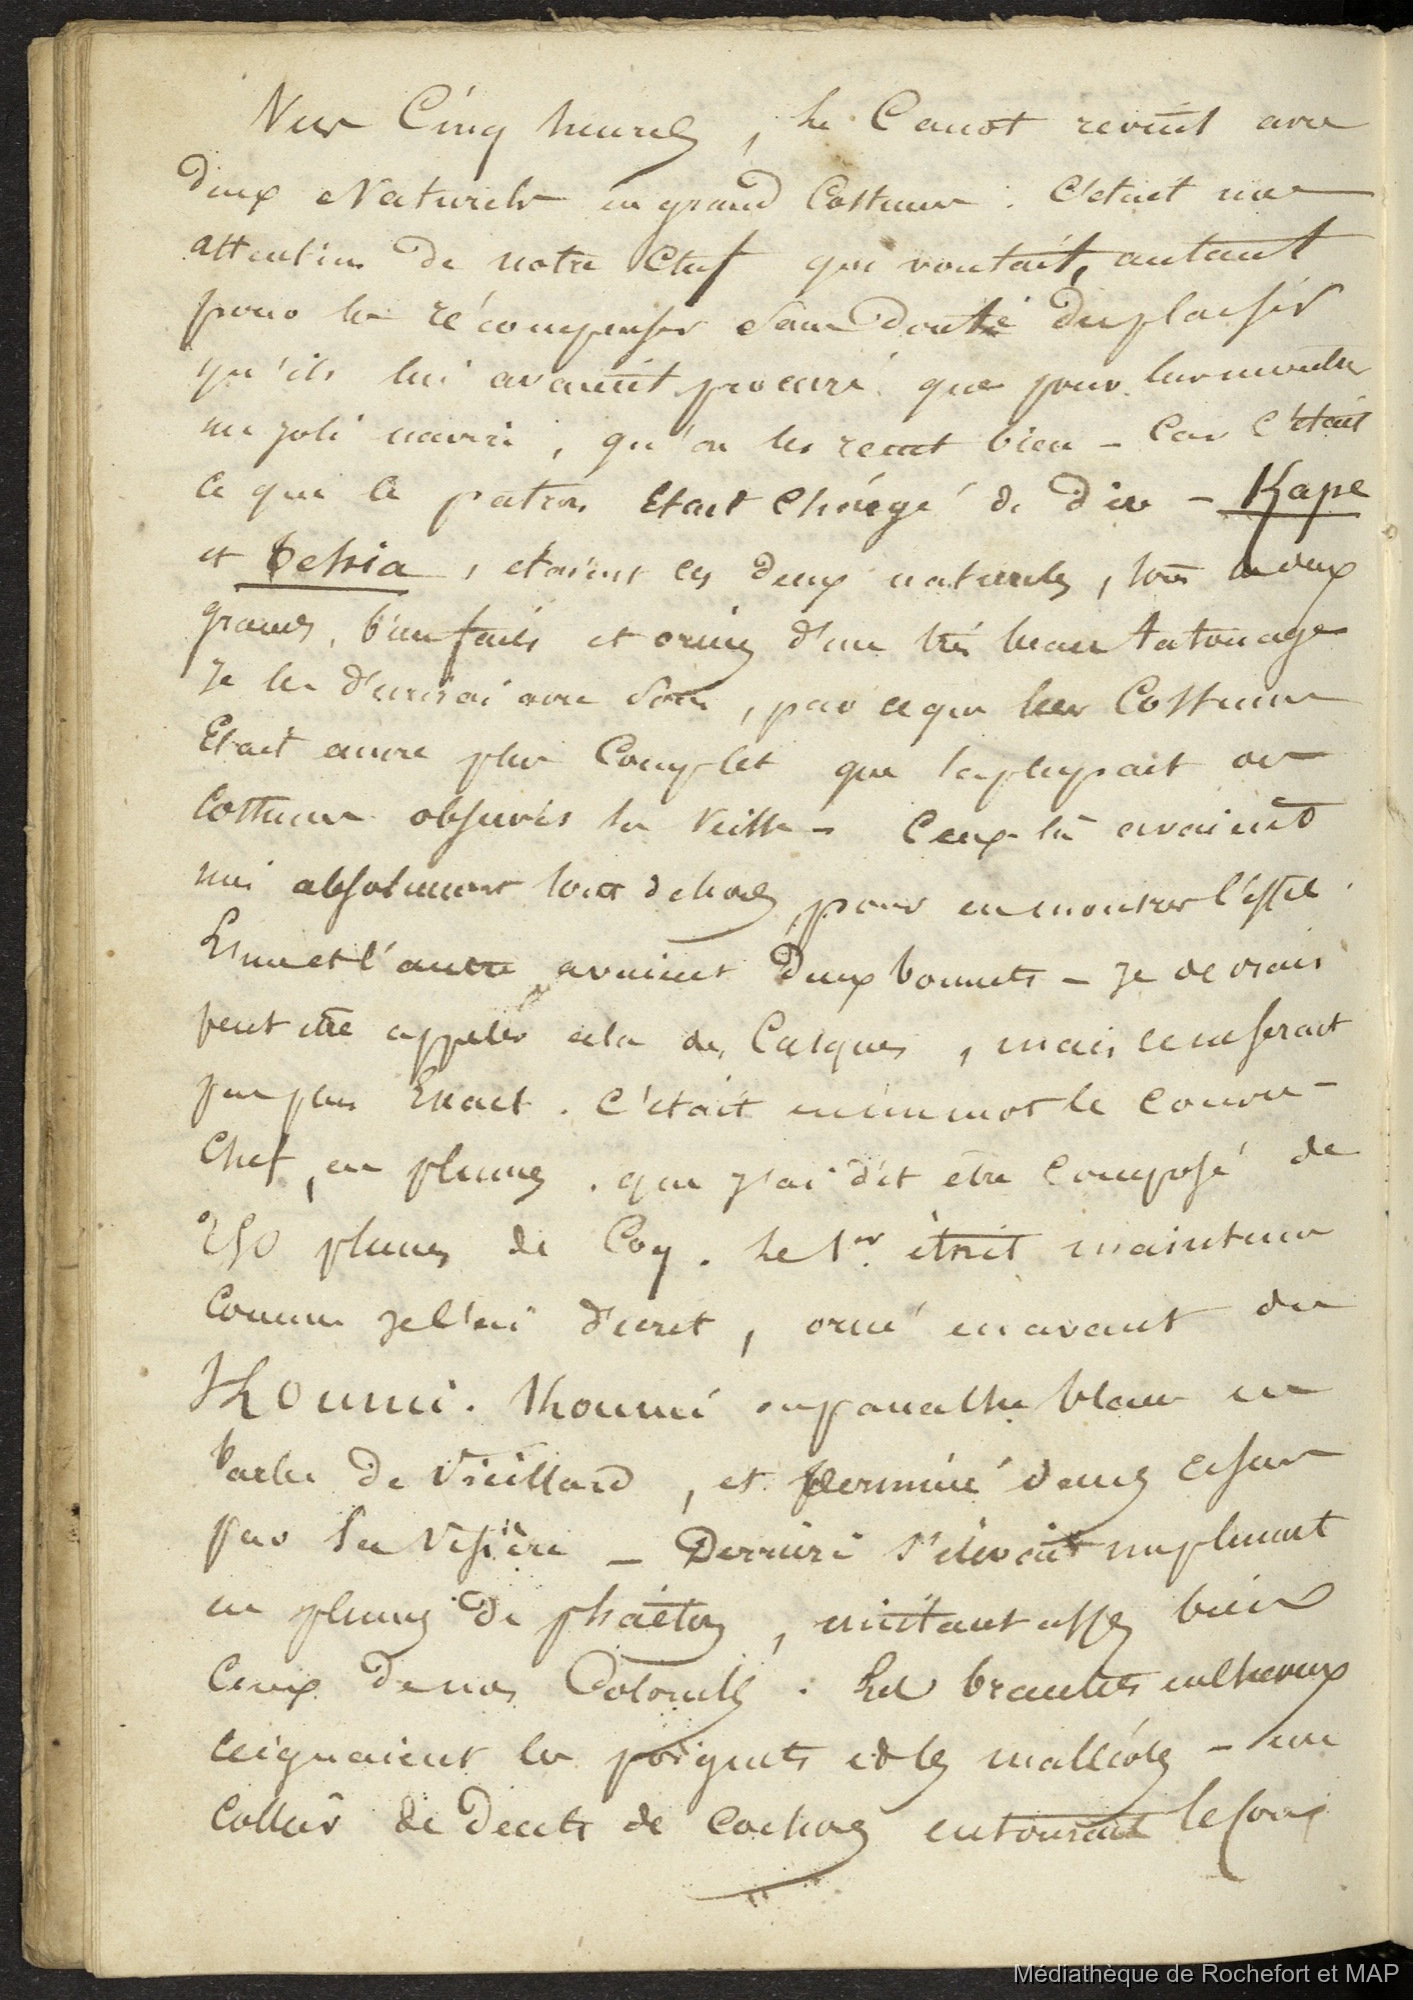 Vers Cinq heures, le Canot revint avec
deux Naturels en grand Costume. C'etait une
attention de notre Chef qui voulait, autant
pour les récompenser sans doute du plaisir
qu'ils lui avaient procuré que pour leur montrer
un joli navire, qu'on les recut bien - Car C'était
Ce que le patron Etait Chargé de dire - Kape
et , etaient ces deux naturels, tous les deux
grands, bien faits et ornés d'un très beau tatouage
Je les dessinai avec soin, par ce que leur Costume
Etait encore plus Complet que la plupart des
Costumes observés la Veille - Ceux-là avaient
mis absolument tout dehors pour en montrer l'effet.
L'un et l'autre avaient deux bonnets - je devrais
peut être appeler cela des Casques, mais ce ne serait
pas plus Exact. C'était en un mot le Couvre-
Chef, en plumes, que j'ai dit etre Composé de
250 plumes de Coq. Le 1er. était maintenu
Comme je l'ai decrit, orné en avant du
Khoumi. Khoumi ou panache blanc en
barbe de Vieillard, et
par la Visière - Derriere s'élevait
en plumes de phaëton, imitant assez bien
Ceux de nos Colonels. Les bracelets en cheveux
ceignaient les poignets et les malléoles - un
Collier de Dents de Cochon entourait le Cou